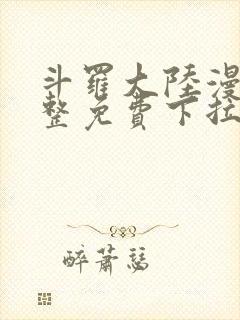 斗羅大陸漫
整免費下拉
醉蕭瑟